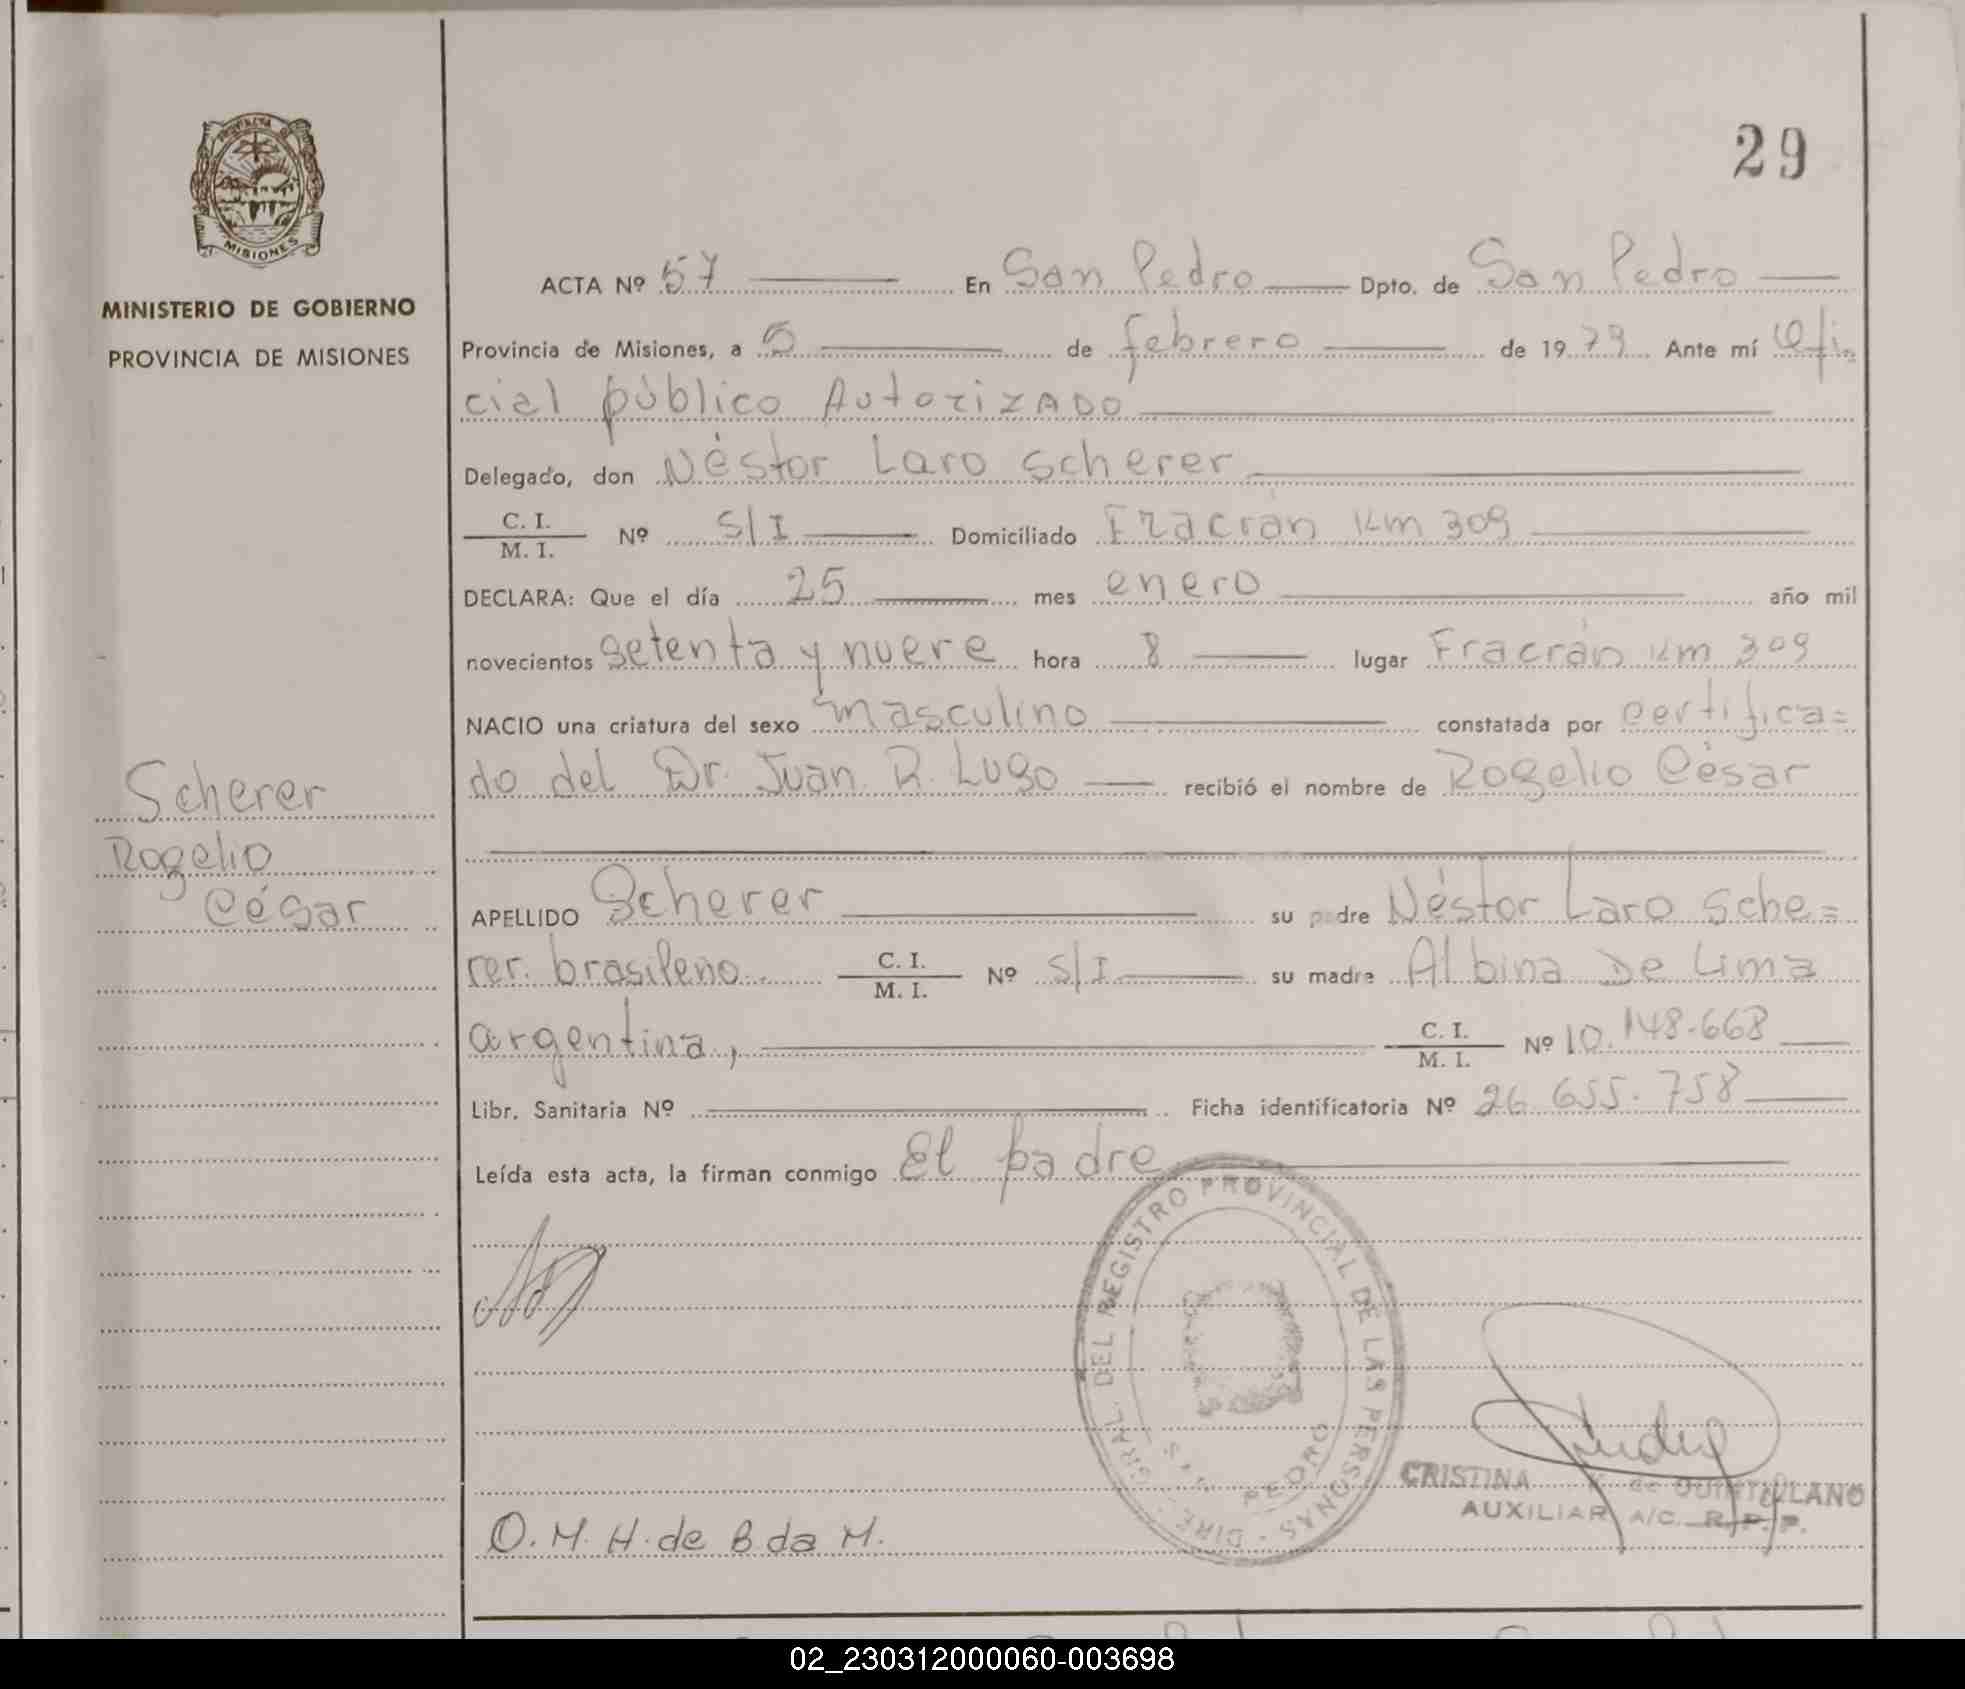 PROVINCIA DE
MISIONES
MINISTERIO DE GOBIERNO
PROVINCIA DE MISIONES
Scherer
Rogelio
César
29
ACTA Nº 57 En San Pedro Dpto. de San Pedro
Provincia de Misiones, a 5 de febrero de 1979 Ante mí Ofi-
cial público Autorizado
Delegado, don Néstor Laro Scherer
C. I.
M. I. Nº S/I Domiciliado Fracrán Km 309
DECLARA: Que el día 25 mes enero año mil
novecientos setenta y nueve hora 8 lugar Fracrán Km 309
NACIO una criatura del sexo masculino constatada por certifica=
do del Dr. Juan R. Lugo recibió el nombre de Rogelio César
APELLIDO Scherer su padre Néstor Laro Sche=
rer. brasileño C. I.
M. I. Nº S/I su madre Albina De Lima
argentina, C. I.
M. I. Nº 10.148.668
Libr. Sanitaria Nº Ficha identificatoria Nº 26.655.758
Leída esta acta, la firman conmigo El padre
DIRE. GRAL. DEL REGISTRO PROVINCIAL DE LAS PERSONAS
SAN PEDRO
CRISTINA K. de QUINTILLANO
AUXILIAR A/C. R. P. P.
O. M. H. de B da M.
02_230312000060-003698